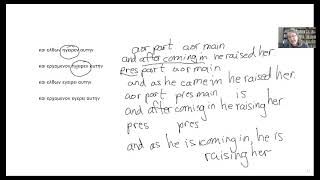 και ελθων ηγειρεν αυτην
και ερχομενος ηγειρεν αυτην
και ελθων εγειρει αυτην
και ερχομενος εγειρει αυτην
aor part aor main
and after coming in he raised her.
pres part aor main
and as he came in he raised her.
aor part pres main is
and after coming in he raising her
pres pres
and as he is coming in, he is
raising her